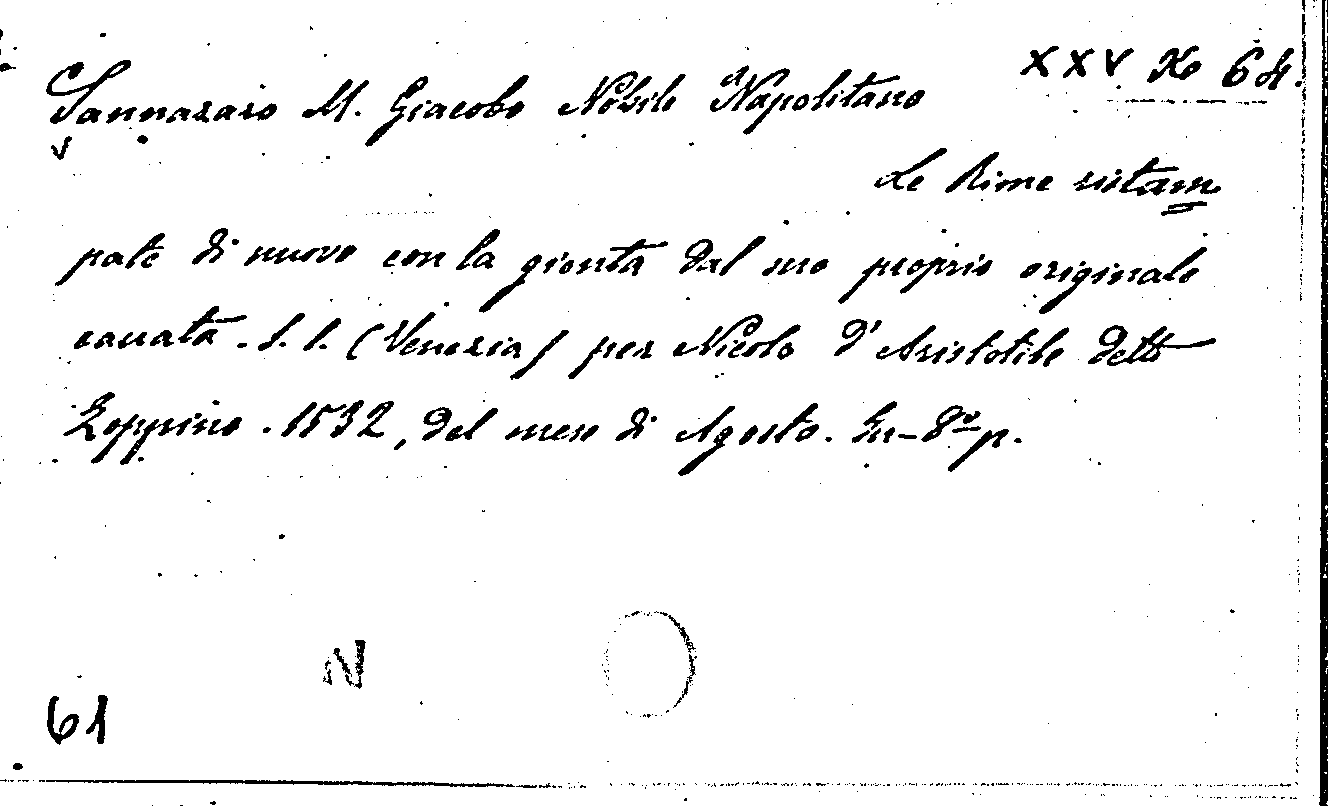 XXV Xo 64.
Sannazaro M. Giacobo Nobile Napolitano
Le Rime ristam
pate di nuovo con la gionta dal suo proprio originale
cauata. S. l. (Venezia) per Nicolo d'Aristotile detto
Zoppino. 1532, del mese di Agosto. In-8º p.
N
61